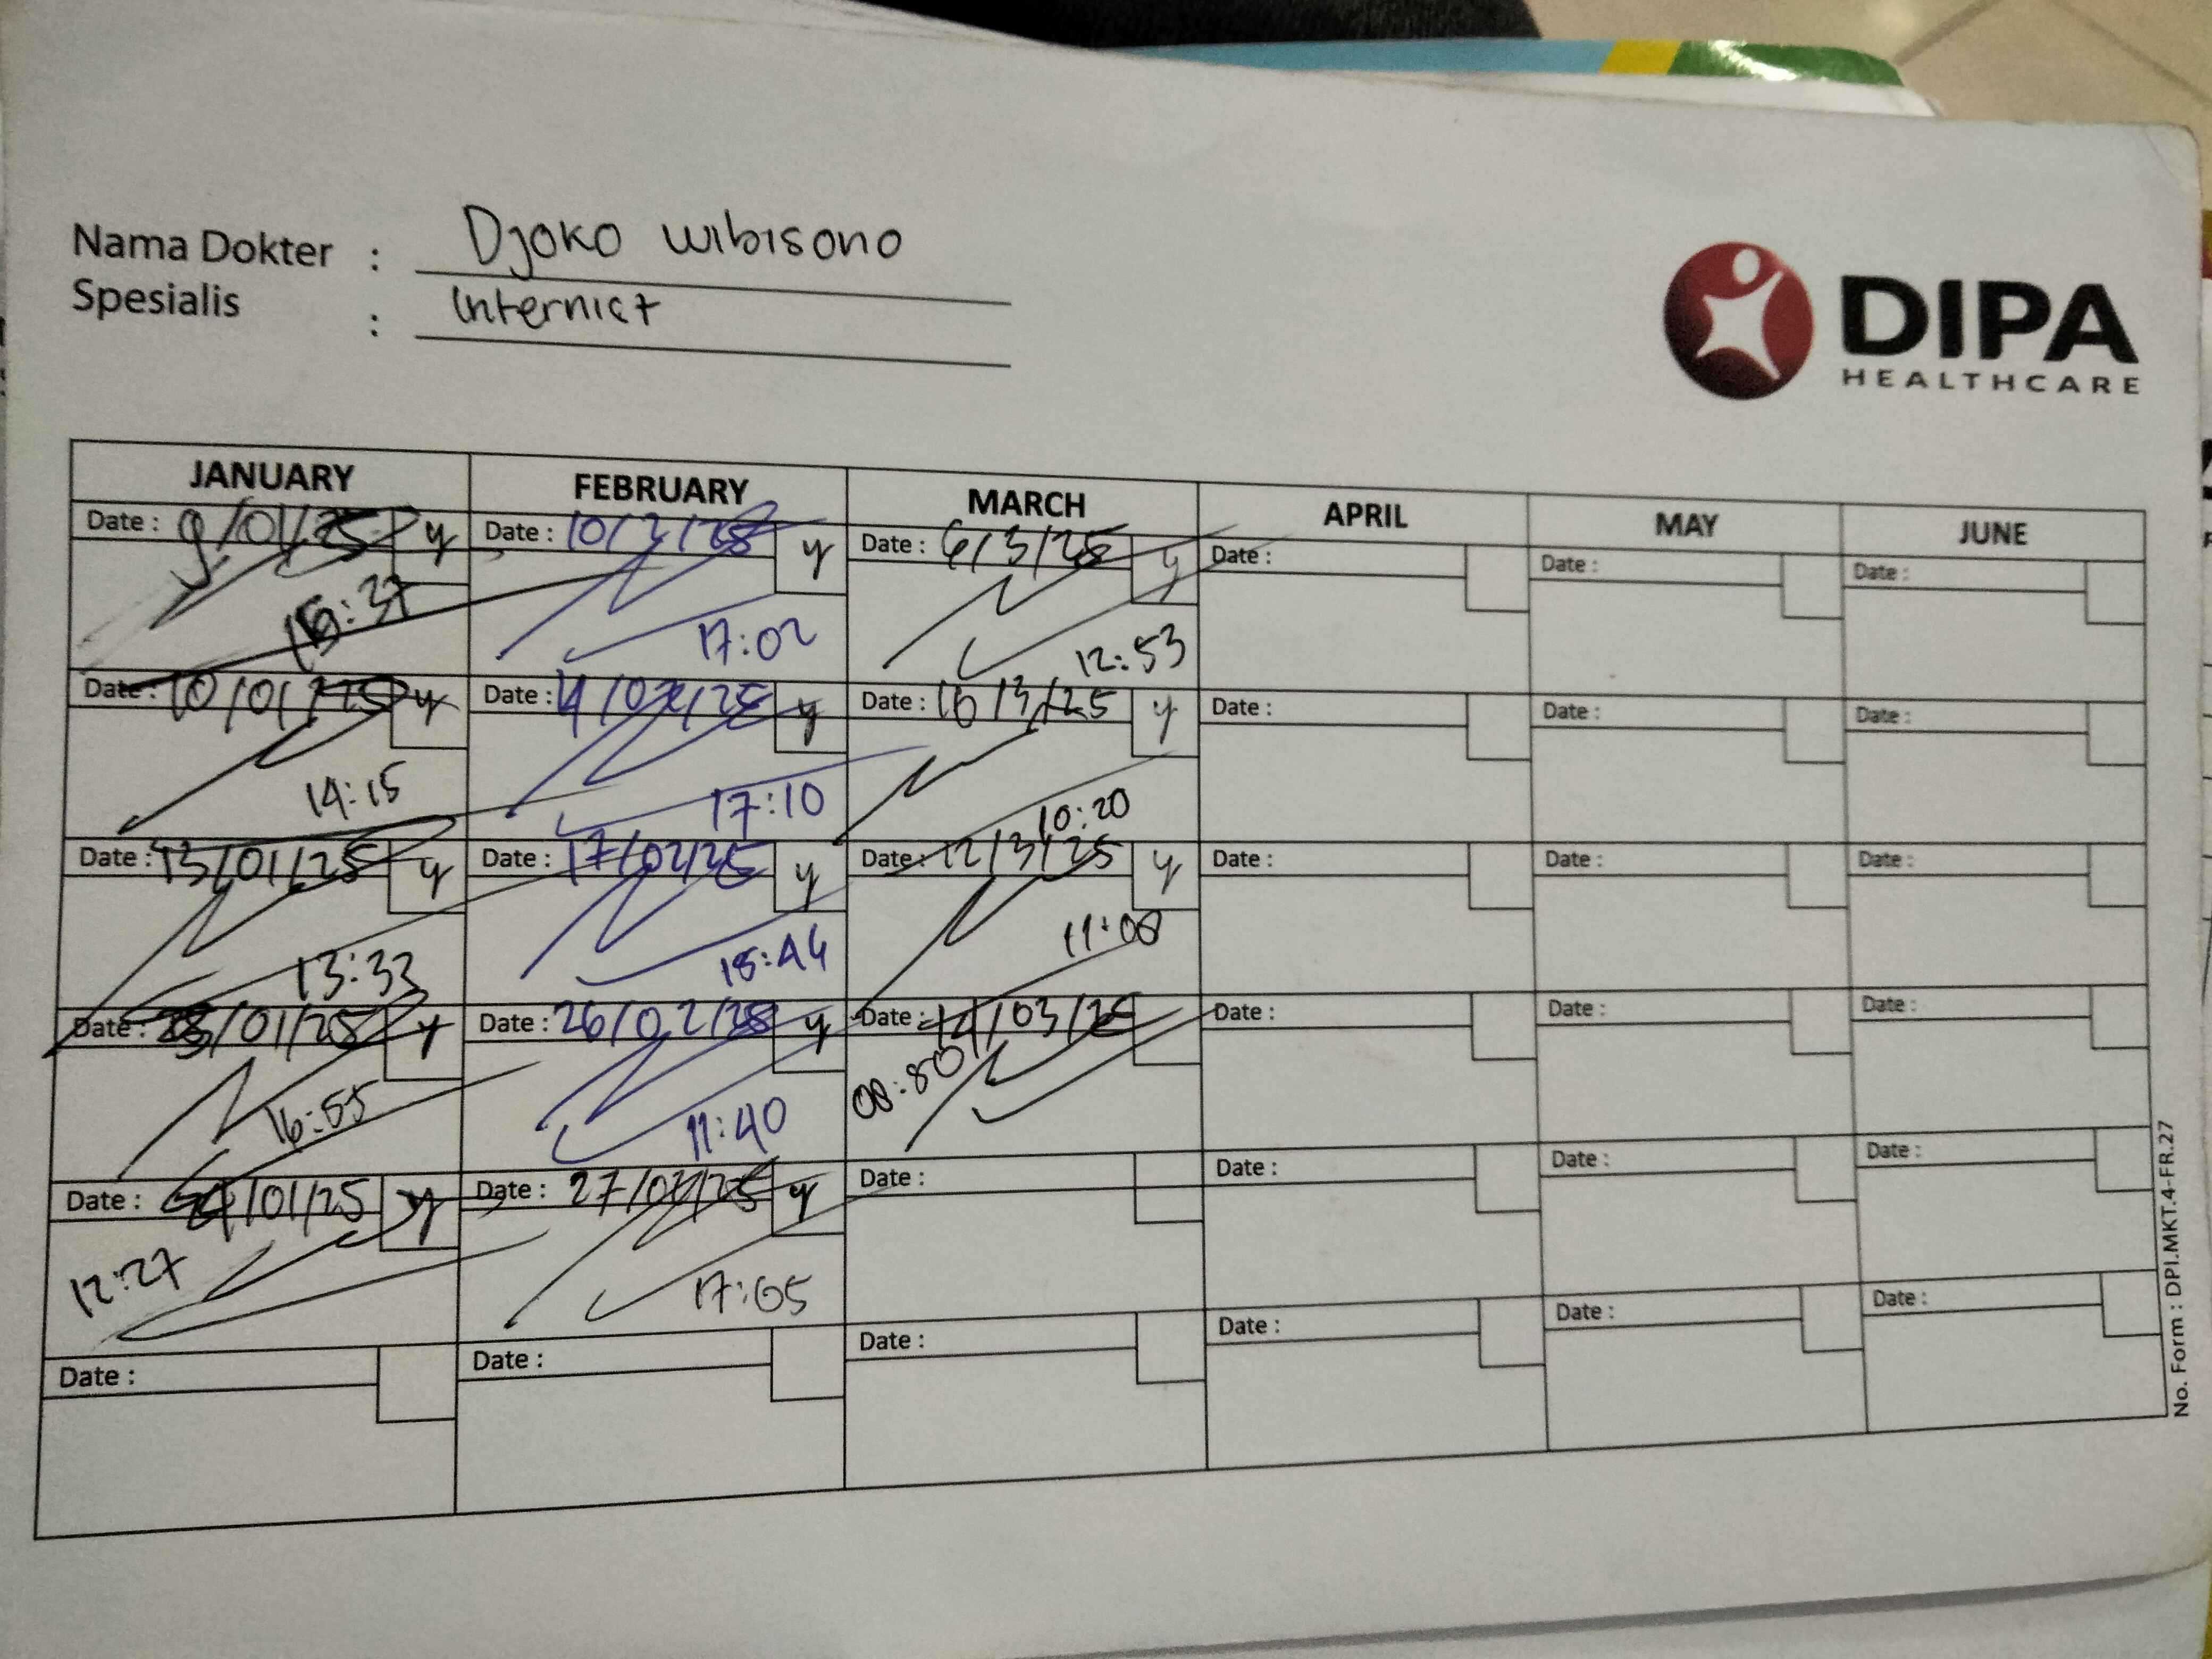 Nama Dokter : Djoko Wibisono
Spesialis : Internist
DIPA
HEALTHCARE
JANUARY FEBRUARY MARCH APRIL MAY JUNE
Date : 9/01/25 y Date : 10/2/25 y Date : 6/3/25 y Date : Date : Date :
17:02 12:53
Date : 10/01/25 y Date : y Date : 10/3/25 y Date : Date : Date :
14:15 17:10 10:20
Date : 13/01/25 y Date : 17/02/25 y Date : 12/3/25 y Date : Date : Date :
13:33 11:08
Date : /01/25 y Date : 26/02/25 y Date : 14/03/25 Date : Date : Date :
16:55 11:40
Date : /01/25 y Date : 27/02/25 y Date : Date : Date : Date :
12:27 17:05
Date : Date : Date : Date : Date : Date :
No. Form : DPI.MKT.4-FR.27